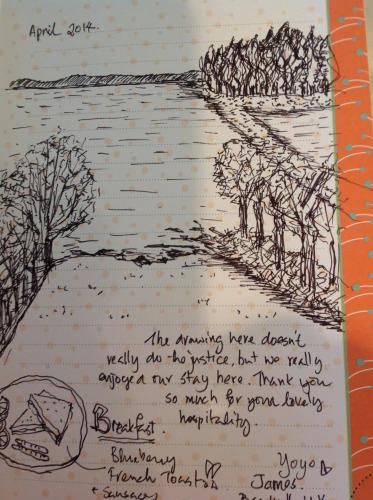 April 2014.
The drawing here doesn't
really do justice, but we really
enjoyed our stay here. Thank you
so much for your lovely
hospitality.
Breakfast.
Blueberry
French Toast
+ Sausages
Yoyo
James.